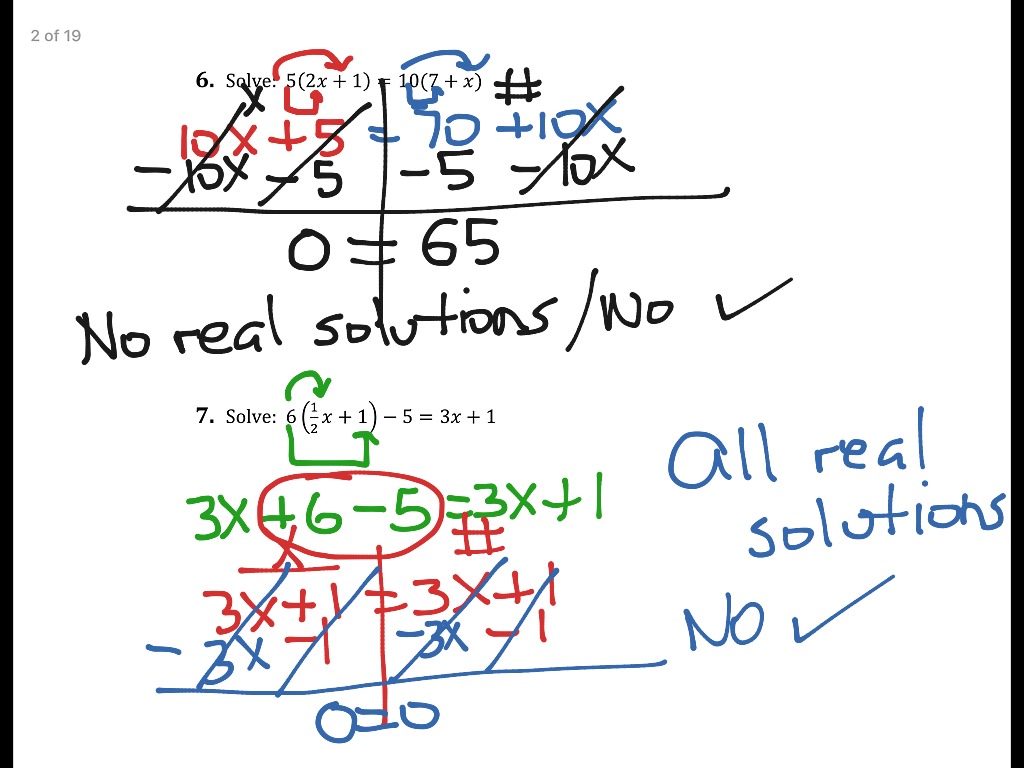 2 of 19
6. Solve: 5(2x + 1) = 10(7 + x) #
x
10x + 5 = 70 + 10x
− 10x − 5 − 5 − 10x
0 = 65
No real solutions / No ✓
7. Solve: 6(1/2 x + 1) − 5 = 3x + 1
3x + 6 − 5 = 3x + 1
#
3x + 1 = 3x + 1
− 3x − 1 − 3x − 1
0 = 0
All real
solutions
No ✓